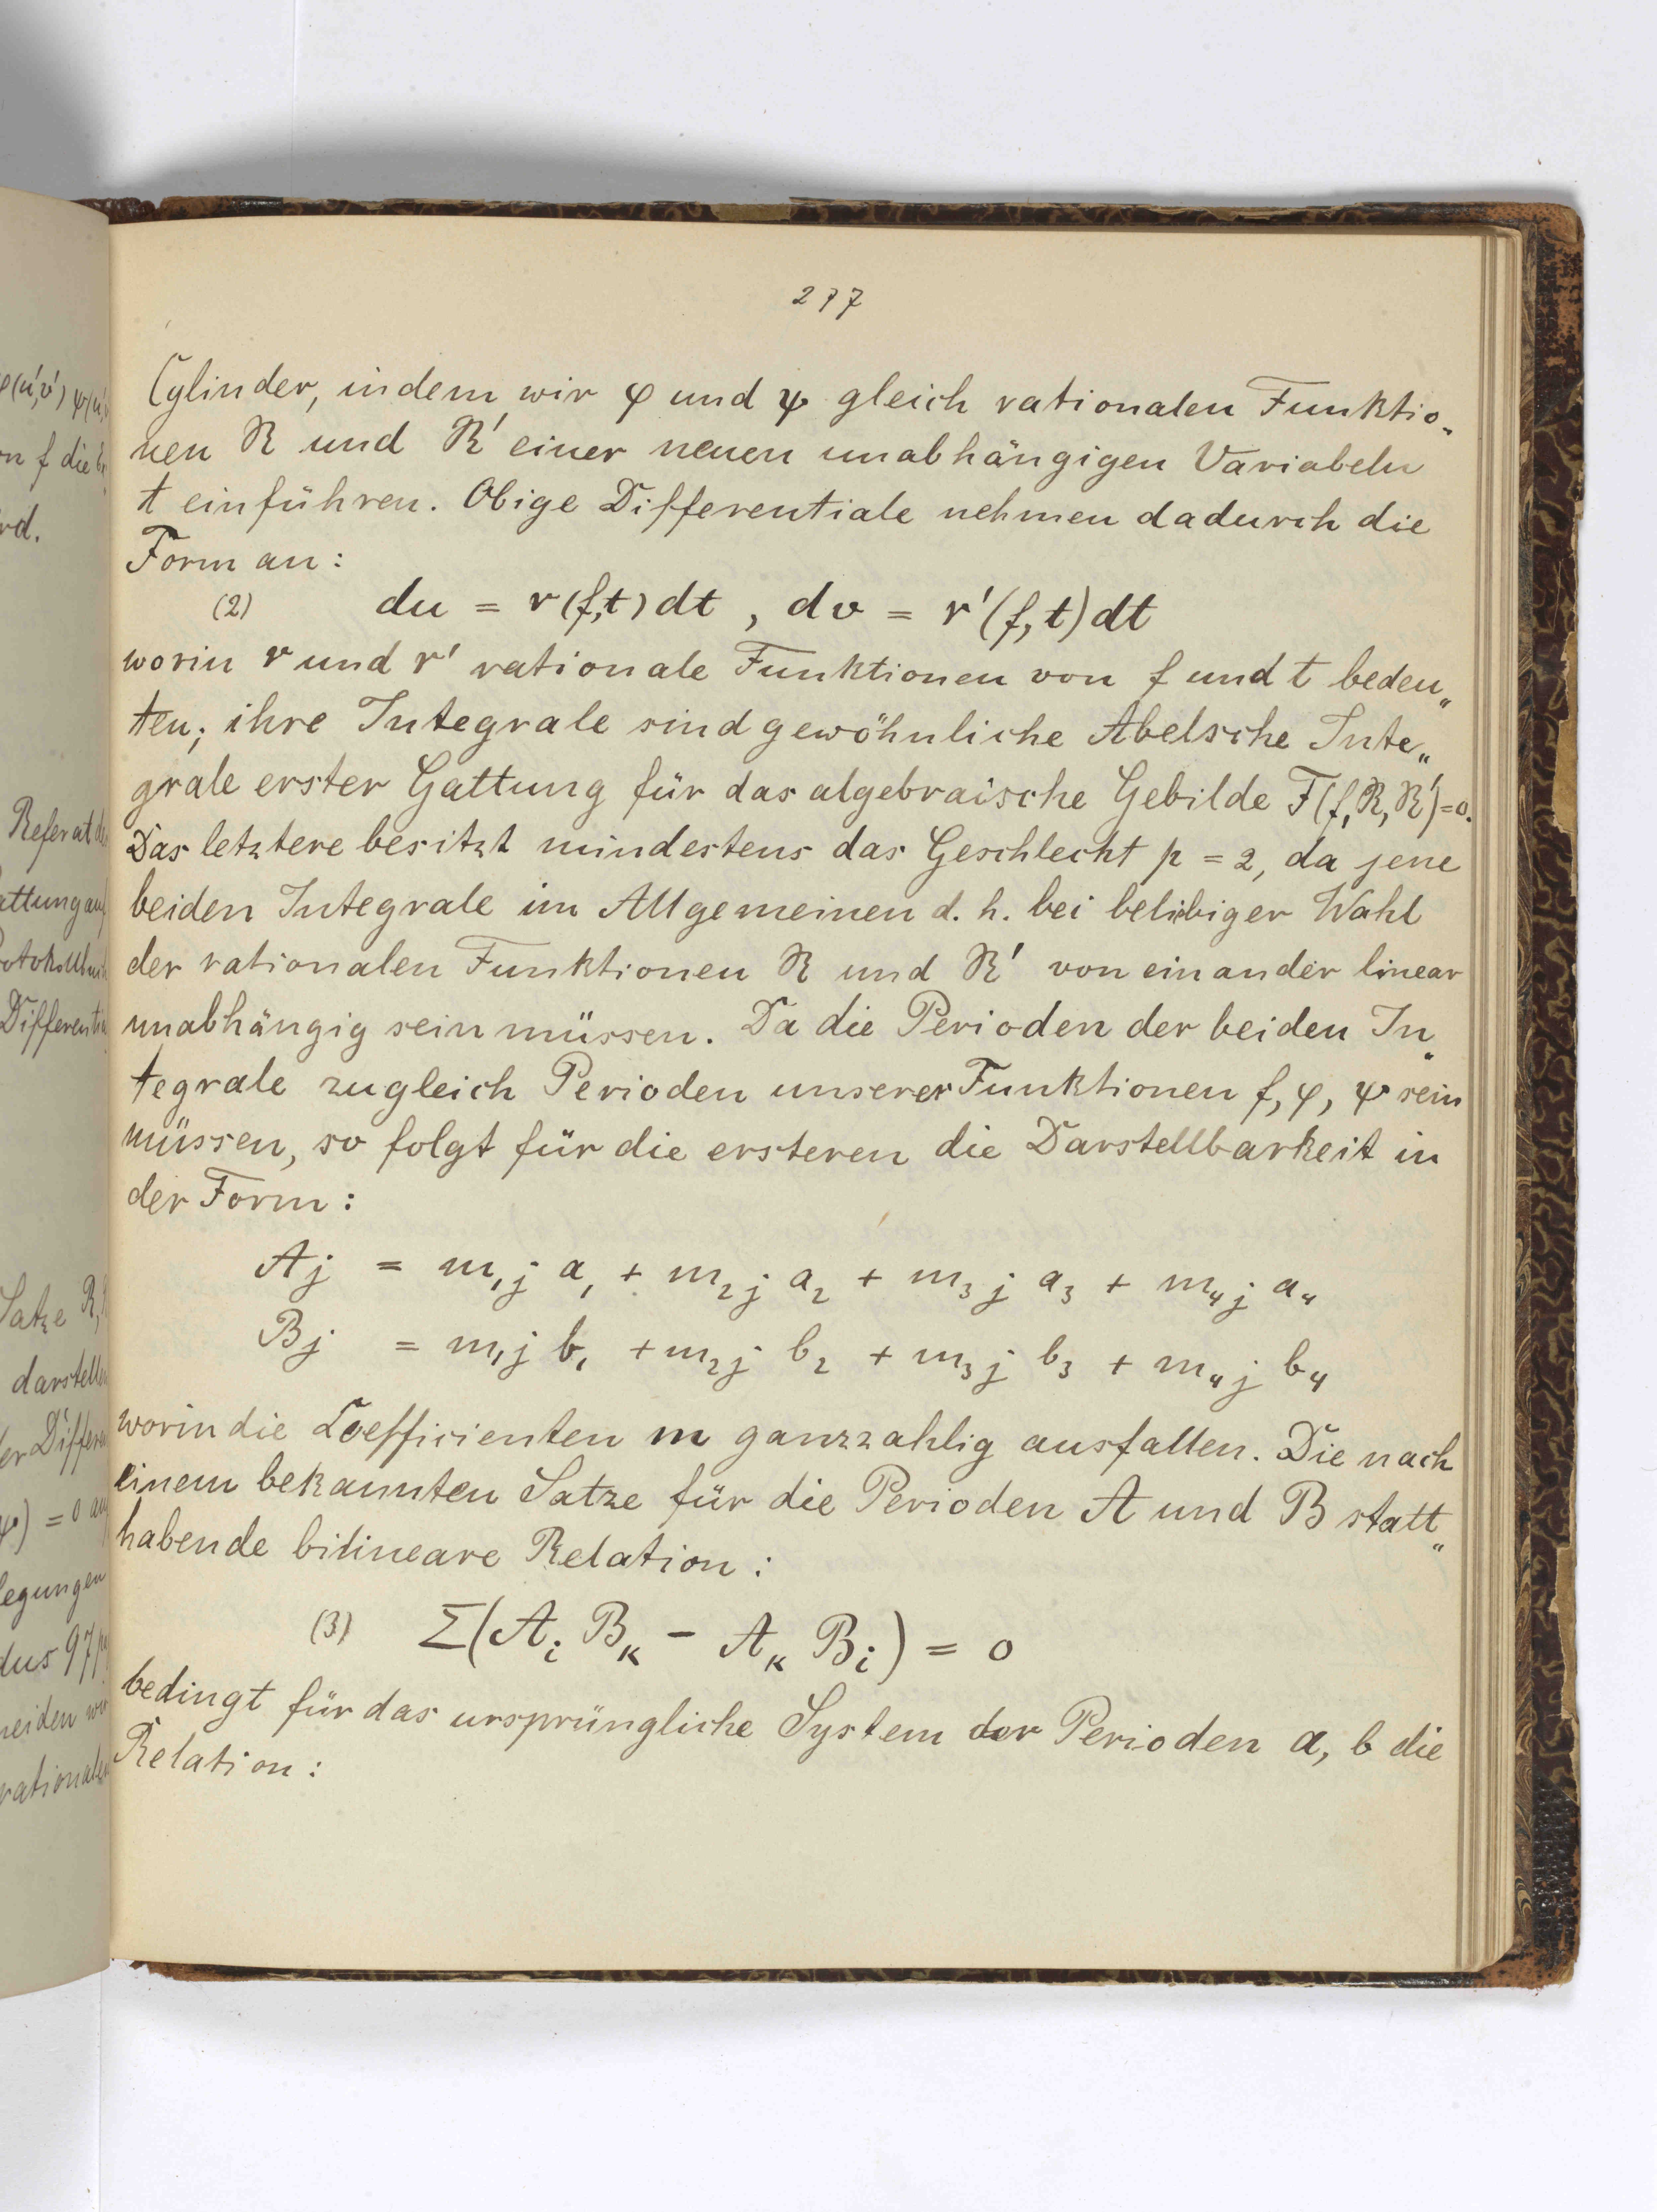 φ(u',v') ψ(u',
n f die
rd.
Referat
attung auf
Differentia
Satze R,
darstellen
er Differen
ψ) = 0
legungen
dus 97
neiden
rationale
277
Cylinder, indem wir φ und ψ gleich rationalen Funktio„
nen R und R' einer neuen unabhängigen Variabeln
t einführen. Obige Differentiale nehmen dadurch die
Form an:
(2) du = r(f,t)dt , dv = r'(f,t)dt
worin r und r' rationale Funktionen von f und t bedeu„
ten; ihre Integrale sind gewöhnliche Abelsche Inte„
grale erster Gattung für das algebraische Gebilde F(f,R,R')=0.
Das letztere besitzt mindestens das Geschlecht p = 2, da jene
beiden Integrale im Allgemeinen d. h. bei belibiger Wahl
der rationalen Funktionen R und R' von einander linear
unabhängig sein müssen. Da die Perioden der beiden In„
tegrale zugleich Perioden unserer Funktionen f, φ, ψ sein
müssen, so folgt für die ersteren die Darstellbarkeit in
der Form:
Aj = m₁j a₁ + m₂j a₂ + m₃j a₃ + m₄j a₄
Bj = m₁j b₁ + m₂j b₂ + m₃j b₃ + m₄j b₄
worin die Coefficienten m ganzzahlig ausfallen. Die nach
einem bekannten Satze für die Perioden A und B statt„
habende bilineare Relation:
(3) Σ(Aᵢ Bₖ - Aₖ Bᵢ) = 0
bedingt für das ursprüngliche System der Perioden a, b die
Relation: